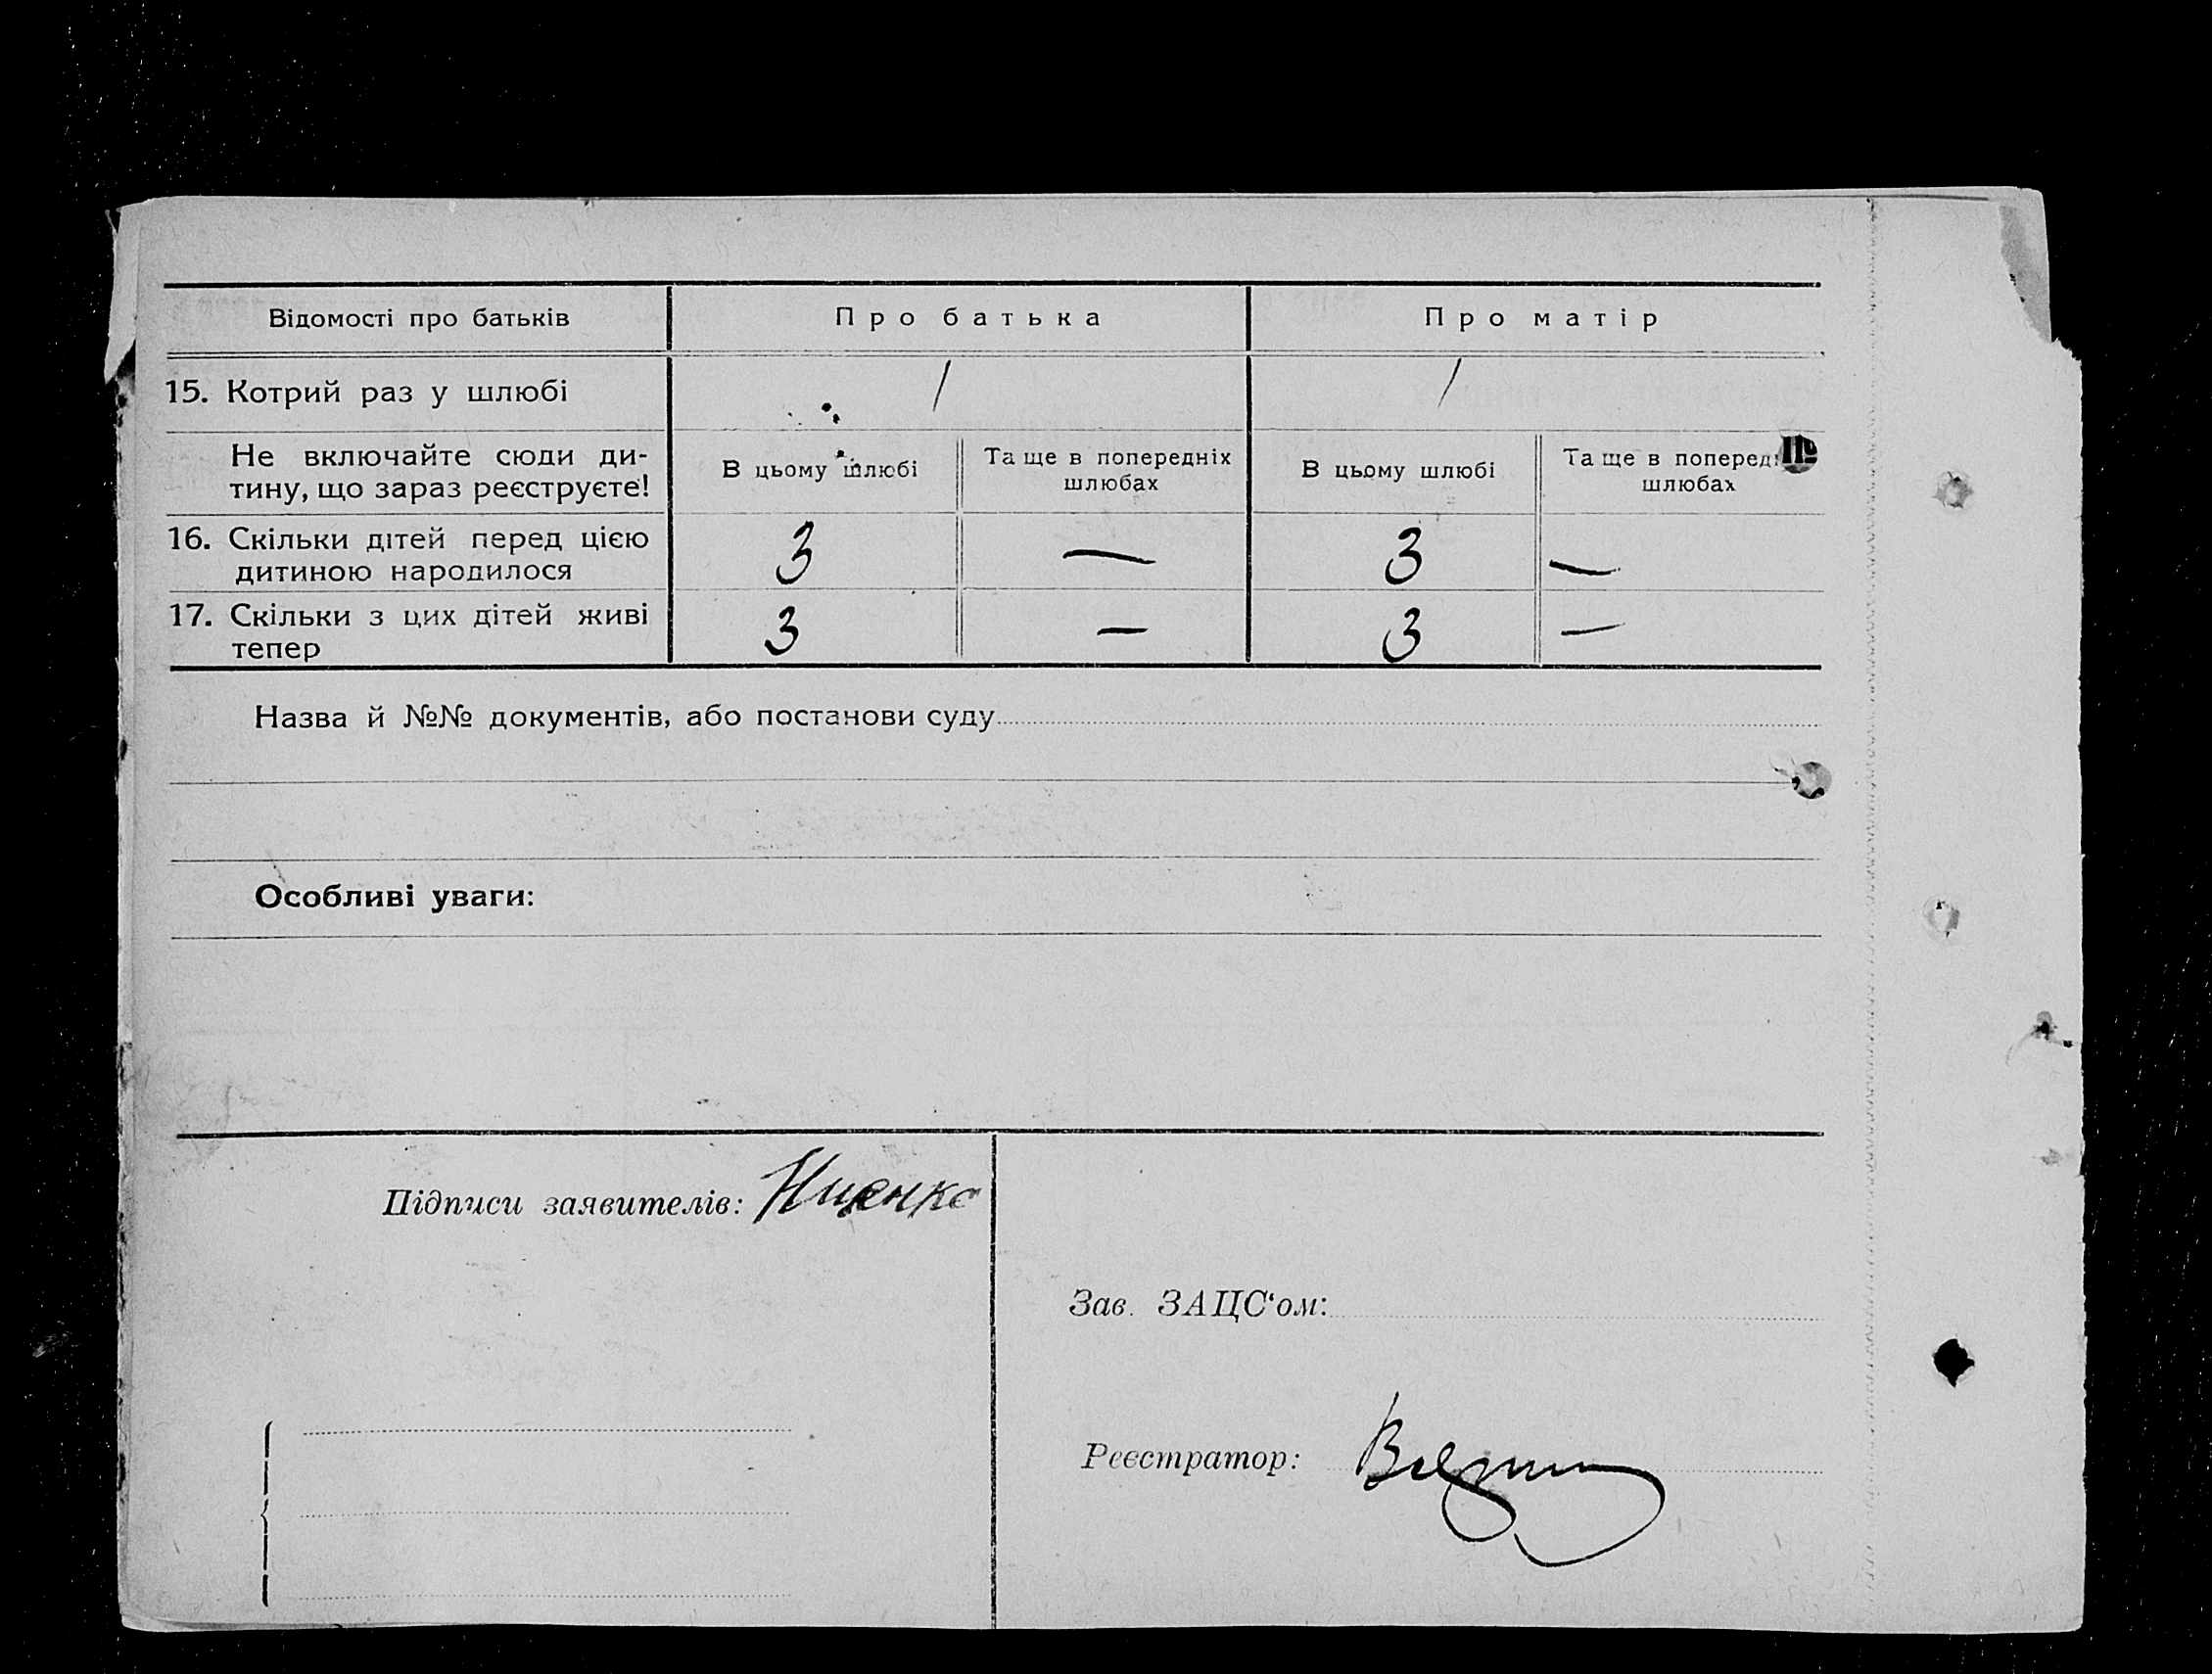 Відомості про батьків Про батька Про матір
15. Котрий раз у шлюбі / /
Не включайте сюди ди-
тину, що зараз реєструєте!
В цьому шлюбі
Та ще в попередніх
шлюбах
В цьому шлюбі
Та ще в
шлюбах
16. Скільки дітей перед цією
дитиною народилося
3 — 3 —
17. Скільки з цих дітей живі
тепер
3 — 3 —
Назва й №№ документів, або постанови суду
Особливі уваги:
Підписи заявителів:
Зав. ЗАЦС‘ом:
Реєстратор: